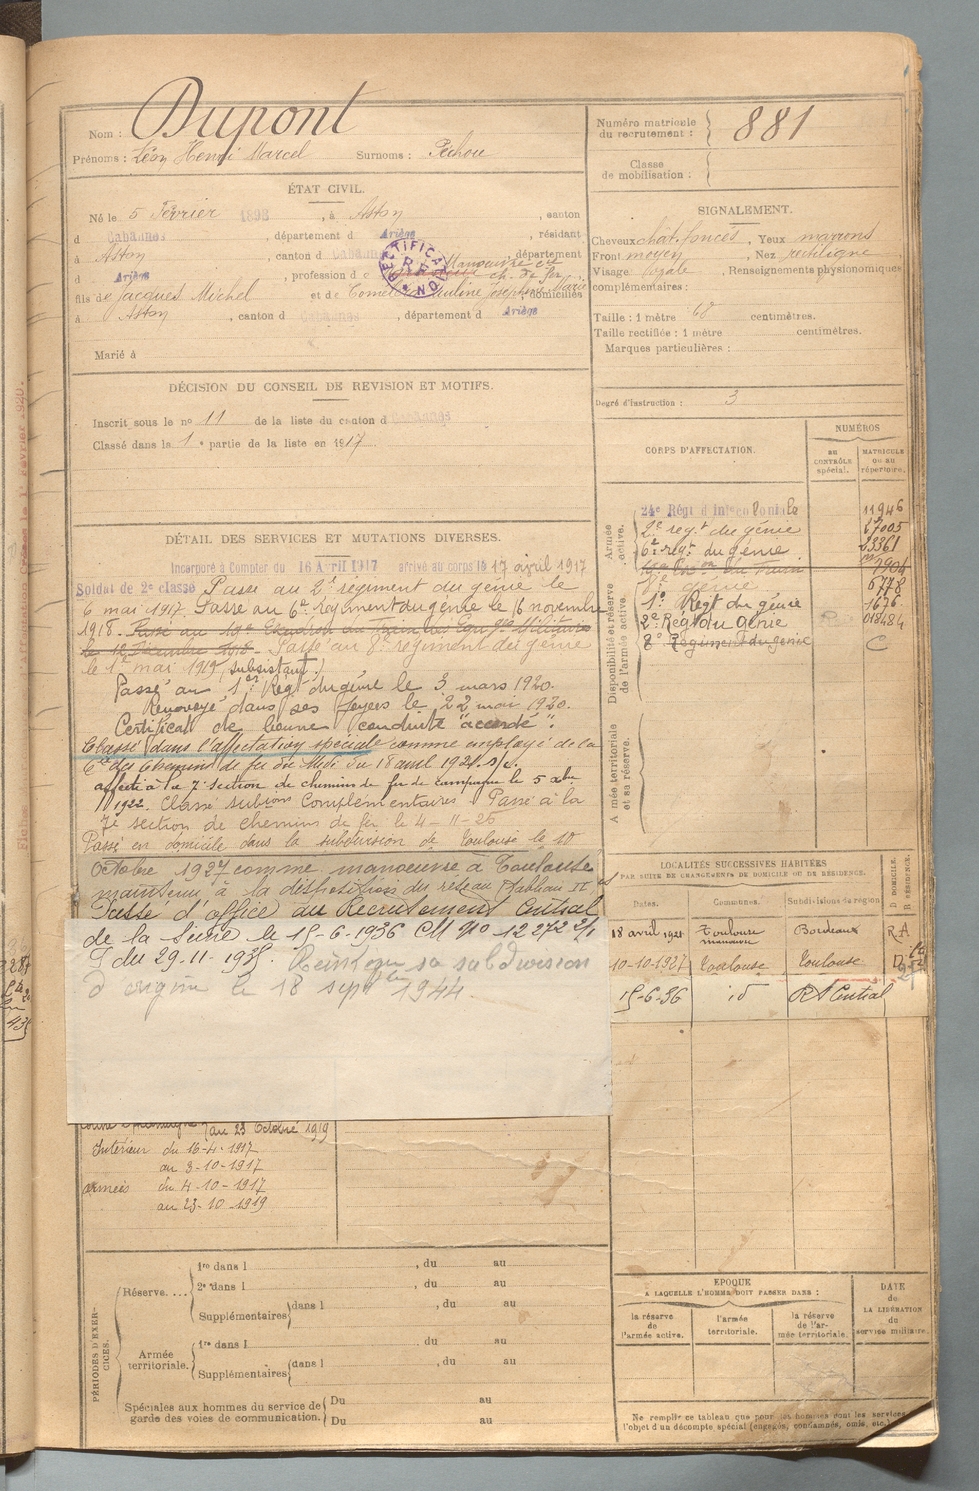 Nom : Dupont
Prénoms : Léon Henri Marcel Surnoms : Péchou
Numéro matricule du recrutement : 881
Classe de mobilisation :
ÉTAT CIVIL.
Né le 5 Février 1898, à Aston, canton
d Cabannes, département d Ariège, résidant
à Aston, canton d Cabannes, département
d Ariège, profession de Manœuvre ch. de fer
fils de Jacques Michel et de Pauline Joséphine Marie, domiciliés
à Aston, canton d Cabannes, département d Ariège
Marié à
RECTIFICATION
R. F.
SIGNALEMENT.
Cheveux chât. foncés, Yeux marrons
Front moyen, Nez rectiligne
Visage ovale, Renseignements physionomiques
complémentaires :
Taille : 1 mètre 68 centimètres.
Taille rectifiée : 1 mètre centimètres.
Marques particulières :
Degré d'instruction : 3
DÉCISION DU CONSEIL DE REVISION ET MOTIFS.
Inscrit sous le no 11 de la liste du canton d Cabannes
Classé dans la 1e partie de la liste en 1917
CORPS D'AFFECTATION.
NUMÉROS
au CONTRÔLE spécial.
MATRICULE ou au répertoire.
Armée active.
24e Régt d'Infie coloniale 11946
2e régt du génie 67005
6e régt du génie 23361
du Train 7904
8e génie 6778
Disponibilité et réserve de l'armée active.
1er Régt du génie 1676
2e Régt du Génie 018484
8e Régiment du génie C
Armée territoriale et sa réserve.
DÉTAIL DES SERVICES ET MUTATIONS DIVERSES.
Incorporé à Compter du 16 Avril 1917 arrivé au corps le 17 avril 1917
Soldat de 2e classe Passé au 2e régiment du génie le
6 mai 1917 Passé au 6e régiment du génie le 16 novembre
1918. Passé au 19e Escadron du Train des Eqn gés Militaires
le 12 Décembre 1918. Passé au 8e régiment du génie
le 1er mai 1919 (subsistant.)
Passé au 1er Régt du génie le 3 mars 1920.
Renvoyé dans ses foyers le 22 mai 1920.
Certificat de bonne conduite "accordé".
Classé dans l'affectation spéciale comme employé de la
Cie des Chemins de fer du Midi du 18 avril 1921.
affecté à la 7e section de chemins de fer de campagne le 5 xbre
1922. Classé subions Complémentaires Passé à la
7e section de chemins de fer le 4-11-26
Passé en domicile dans la subdivision de Toulouse le 10
Octobre 1927 comme manœuvre à Toulouse
maintenu à la disposition du réseau Tableau II
Passé d'office au Recrutement Central
de la Seine le 15-6-1936 CM No 12272
du 29-11-1935. Réintégré sa subdivision
d'origine le 18 septbre 1944.
LOCALITÉS SUCCESSIVES HABITÉES
PAR SUITE DE CHANGEMENTS DE DOMICILE OU DE RÉSIDENCE.
Dates. Communes. Subdivisions de région D. DOMICILE. R. RÉSIDENCE.
18 avril 1921 Toulouse Bordeaux R.A.
10-10-1927 Toulouse Toulouse D
15-6-36 id R Central
au 23 Octobre 1919
Intérieur du 16-4-1917
au 3-10-1917
armées du 4-10-1917
au 23-10-1919
PÉRIODES D'EXERCICES.
Réserve.... 1re dans l , du au
2e dans l , du au
Supplémentaires dans l , du au
Armée territoriale. 1re dans l du au
Supplémentaires dans l , du au
Spéciales aux hommes du service de garde des voies de communication. Du au
Du au
EPOQUE
A LAQUELLE L'HOMME DOIT PASSER DANS :
la réserve de l'armée active.
l'armée territoriale.
la réserve de l'armée territoriale.
DATE de LA LIBÉRATION du service militaire.
Ne remplir ce tableau que pour les hommes dont les services
l'objet d'un décompte spécial (engagés, condamnés, omis, etc.)